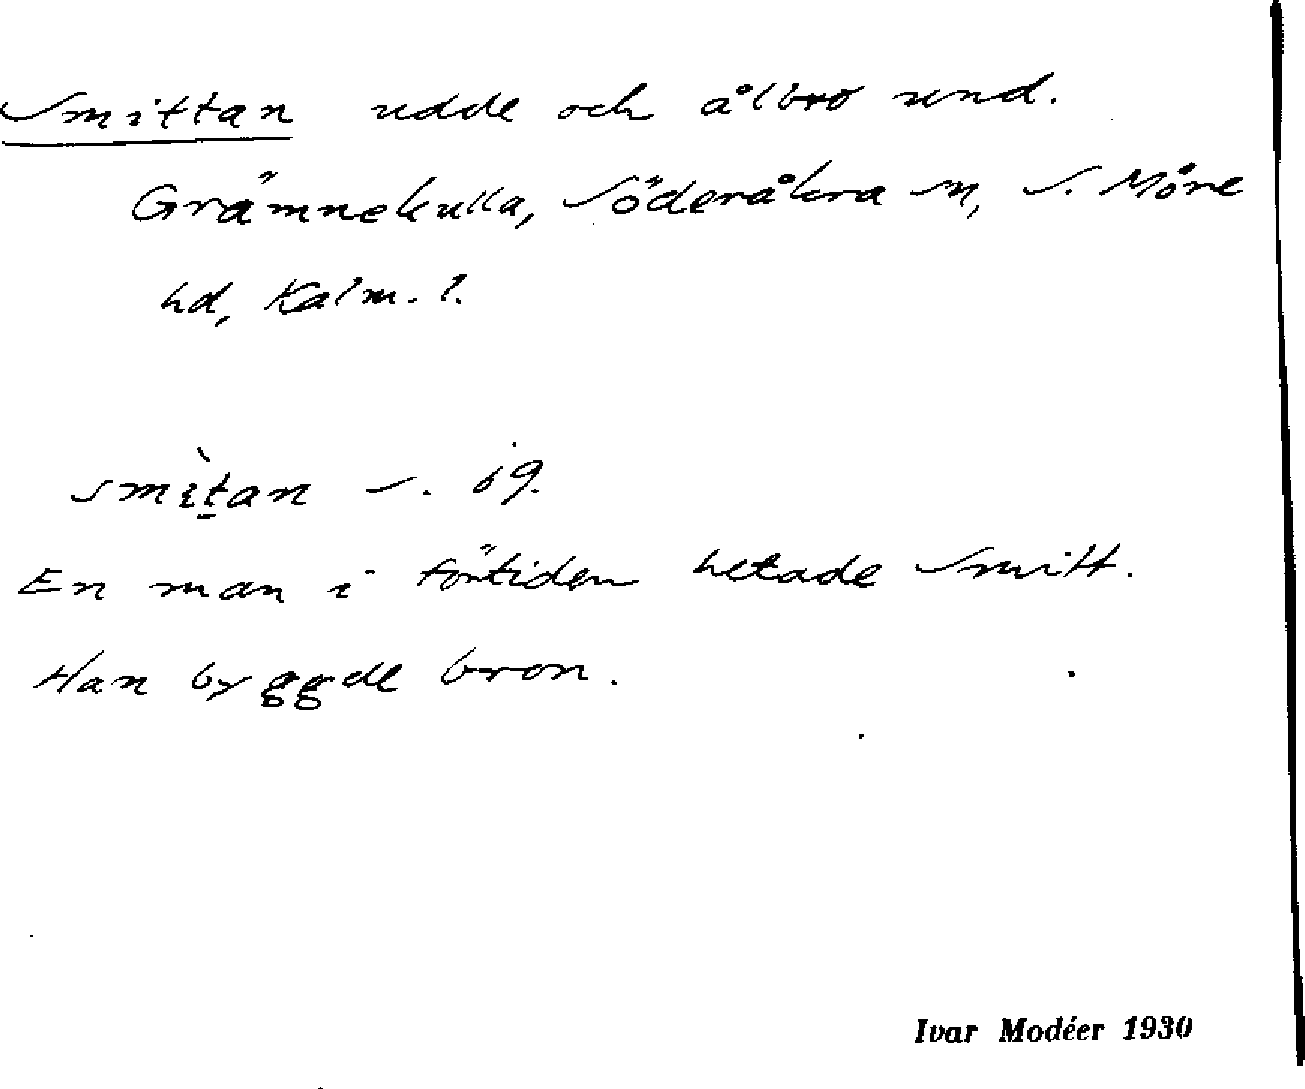 Smittan udde och ålbro und.
Grämnekulla, Söderåkra sn, S. Möre
hd, Kalm. l.
smìtan s. 69.
En man i förtiden hetade Smitt.
Han byggde bron.
Ivar Modéer 1930